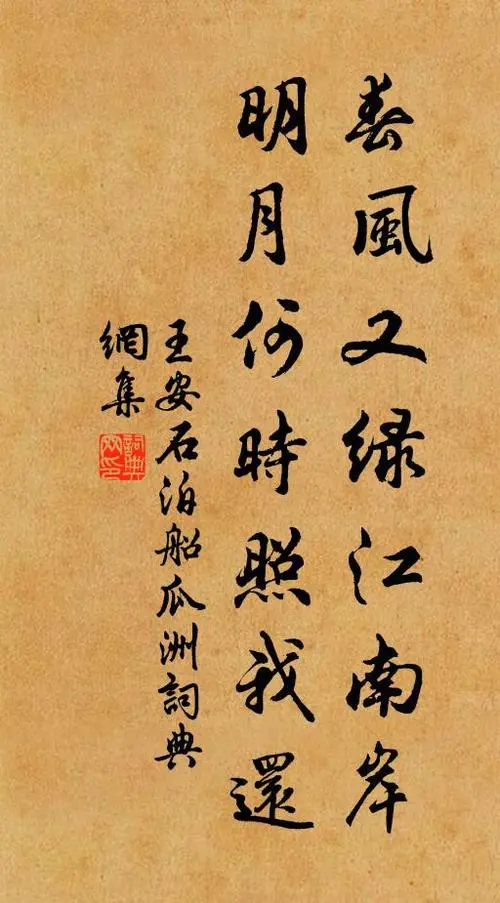 春風又綠江南岸
明月何時照我還
王安石泊船瓜洲詞典
網集